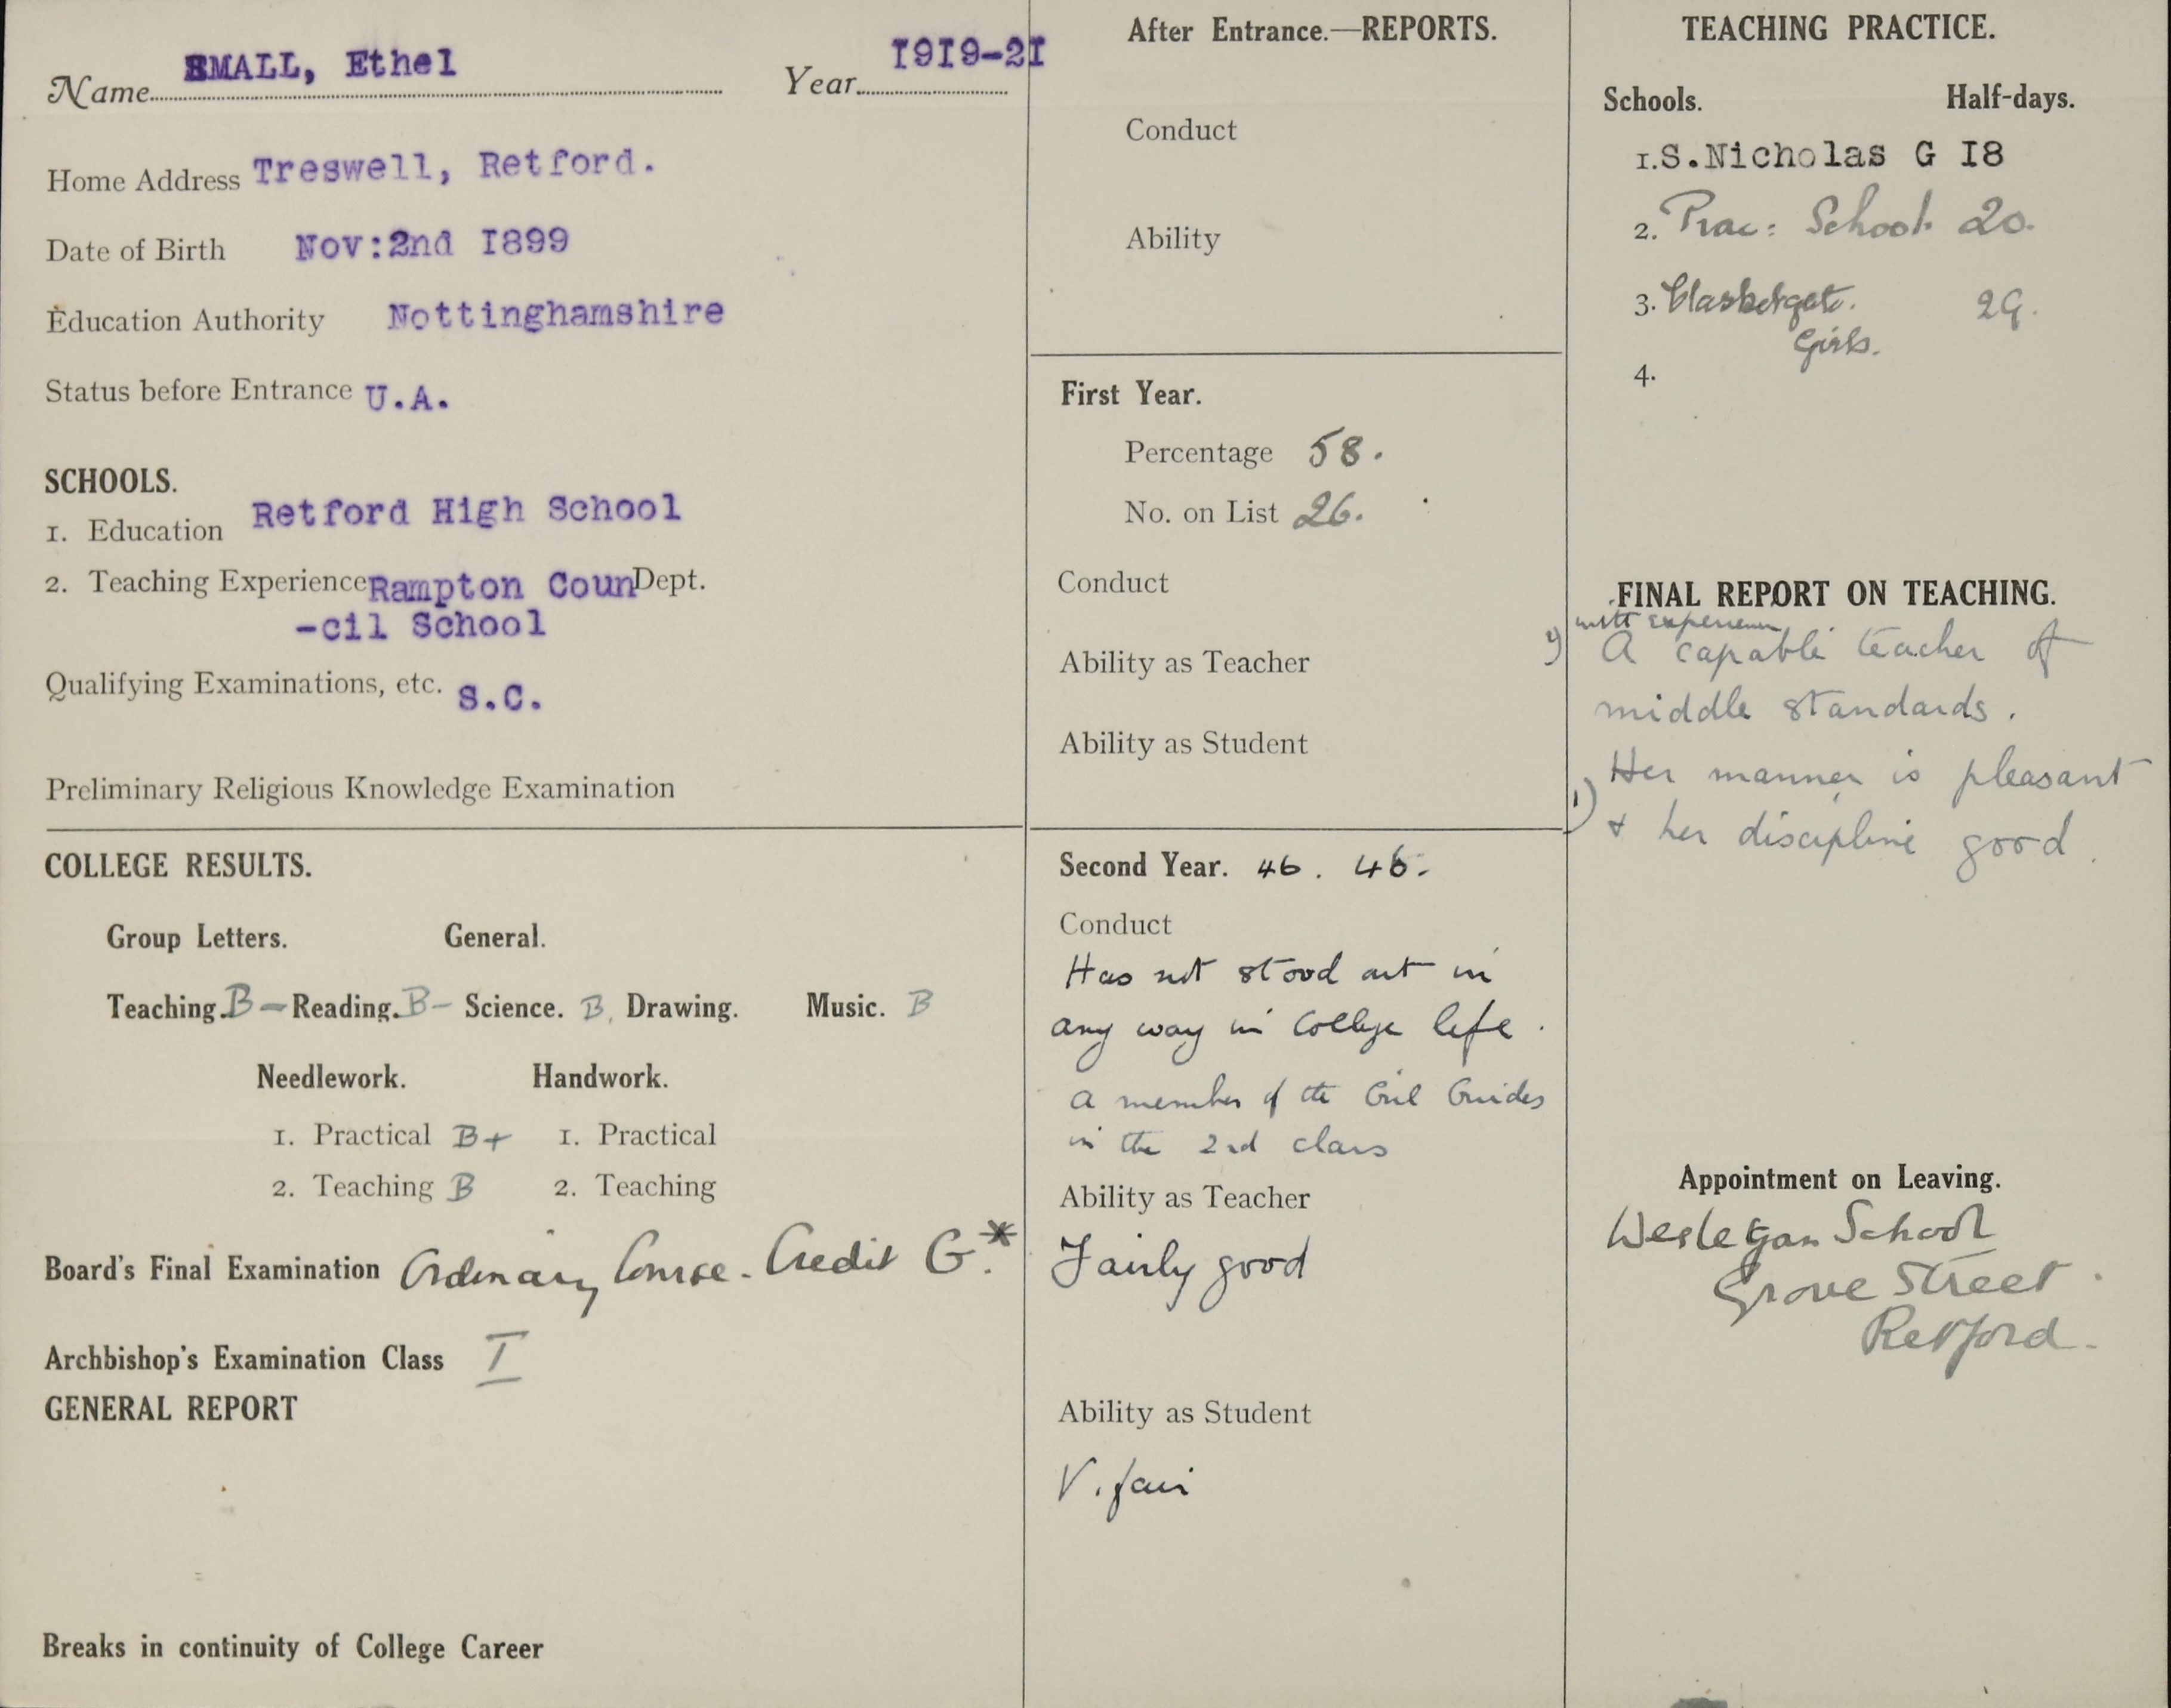 Name SMALL, Ethel Year 1919-21
Home Address Treswell, Retford.
Date of Birth Nov:2nd 1899
Education Authority Nottinghamshire
Status before Entrance U.A.
SCHOOLS.
1. Education Retford High School
2. Teaching Experience Rampton Coun Dept.
-cil School
Qualifying Examinations, etc. S.C.
Preliminary Religious Knowledge Examination
COLLEGE RESULTS.
Group Letters. General.
Teaching. B- Reading. B- Science. B. Drawing. Music. B
Needlework. Handwork.
1. Practical B+ 1. Practical
2. Teaching B 2. Teaching
Board's Final Examination Ordinary Course. Credit G.*
Archbishop's Examination Class I
GENERAL REPORT
Breaks in continuity of College Career
After Entrance.—REPORTS.
Conduct
Ability
First Year.
Percentage 58.
No. on List 26.
Conduct
Ability as Teacher
Ability as Student
Second Year. 46. 46.
Conduct
Has not stood out in
any way in College life.
a member of the Girl Guides
in the 2nd class
Ability as Teacher
Fairly good
Ability as Student
V. fair
TEACHING PRACTICE.
Schools. Half-days.
1. S.Nicholas G 18
2. Prac: School. 20.
3. Clasketgate. 29.
Girls.
4.
FINAL REPORT ON TEACHING.
with experience
2) A capable teacher of
middle standards.
1) Her manner is pleasant
& her discipline good.
Appointment on Leaving.
Wesleyan School
Grove Street.
Retford.